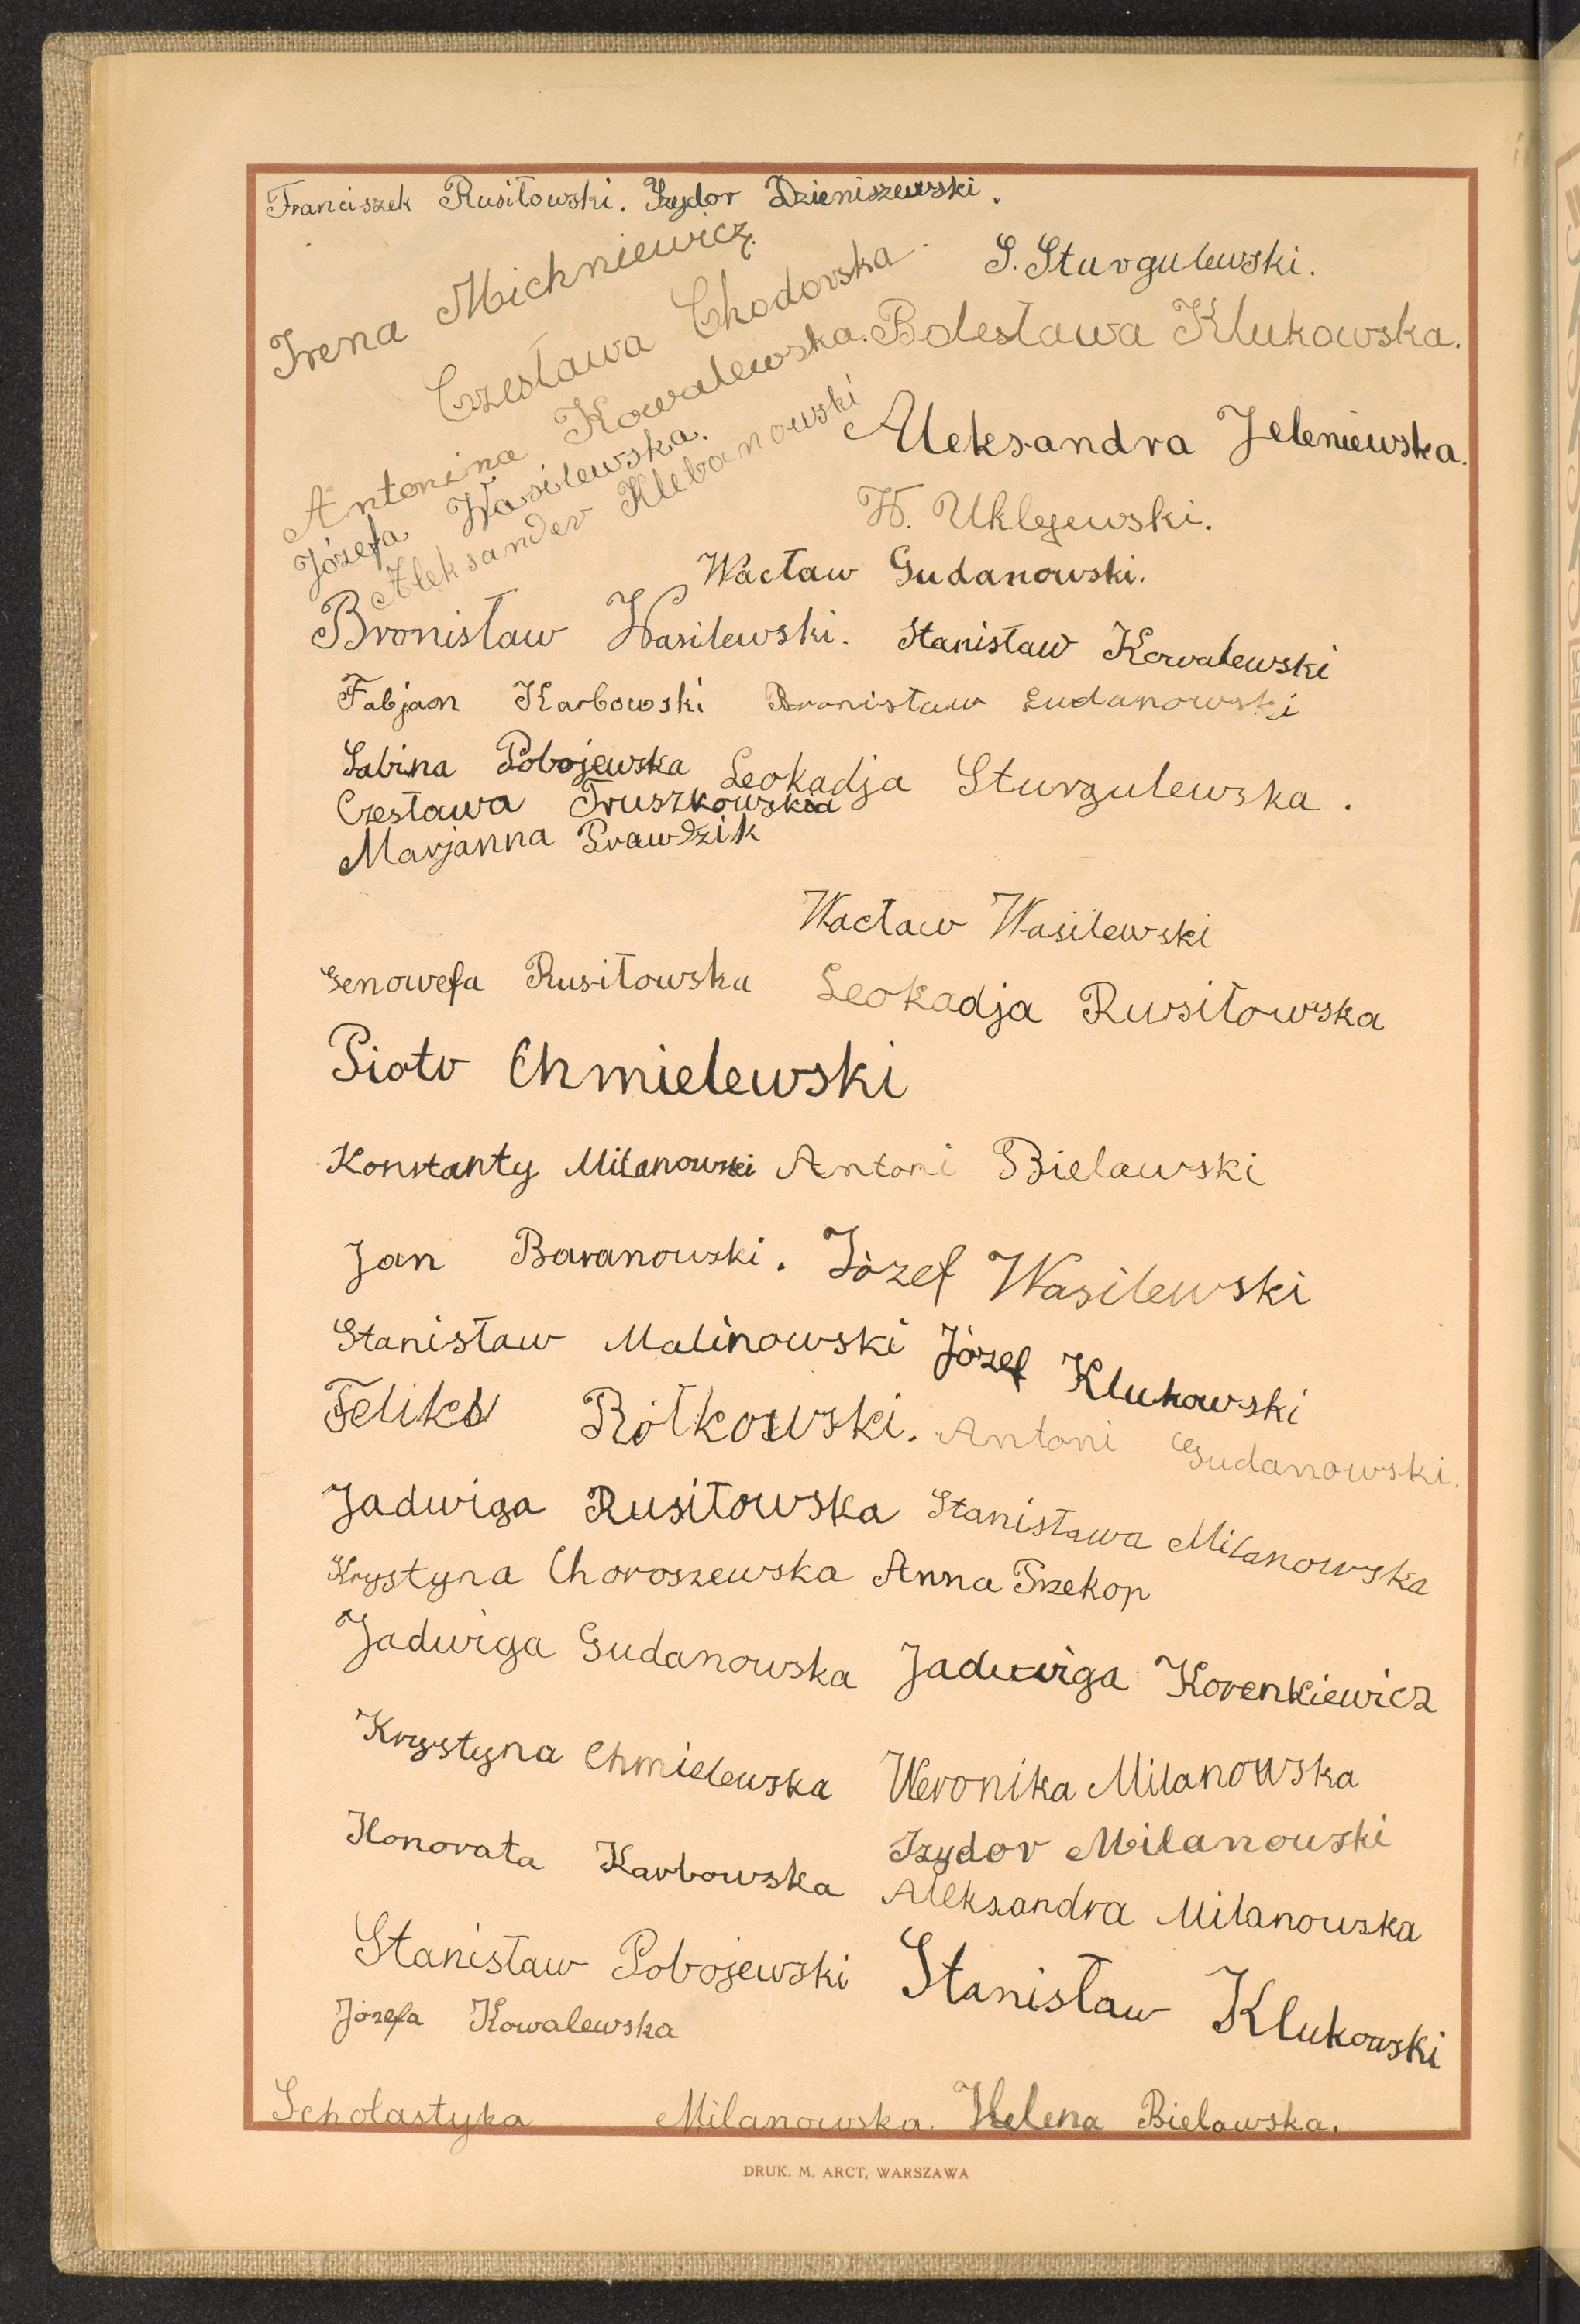 Franciszek Rusiłowski. Izydor Dzieniszewski.
Irena Michniewicz.
S. Sturgulewski.
Czesława Chodorska
Antonina Kowalewska. Bolesława Klukowska.
Józefa Wasilewska.
Aleksandra Jeleniewska.
Aleksander Klebanowski
W. Uklejewski.
Wacław Gudanowski.
Bronisław Wasilewski. Stanisław Kowalewski
Fabjan Karbowski Bronisław Gudanowski
Sabina Pobojewska Leokadja Sturgulewska.
Czesława Truszkowska
Marjanna Prawdzik
Wacław Wasilewski
Genowefa Rusiłowska Leokadja Rusiłowska
Piotr Chmielewski
Konstanty Milanowski Antoni Bielawski
Jan Baranowski. Józef Wasilewski
Stanisław Malinowski Józef Klukowski
Feliks Rółkowski. Antoni Gudanowski.
Jadwiga Rusiłowska Stanisława Milanowska
Krystyna Choroszewska Anna Przekop
Jadwiga Gudanowska Jadwiga Korenkiewicz
Krystyna Chmielewska Weronika Milanowska
Izydor Milanowski
Honorata Karbowska Aleksandra Milanowska
Stanisław Pobojewski Stanisław Klukowski
Józefa Kowalewska
Scholastyka Milanowska. Helena Bielawska.
DRUK. M. ARCT, WARSZAWA